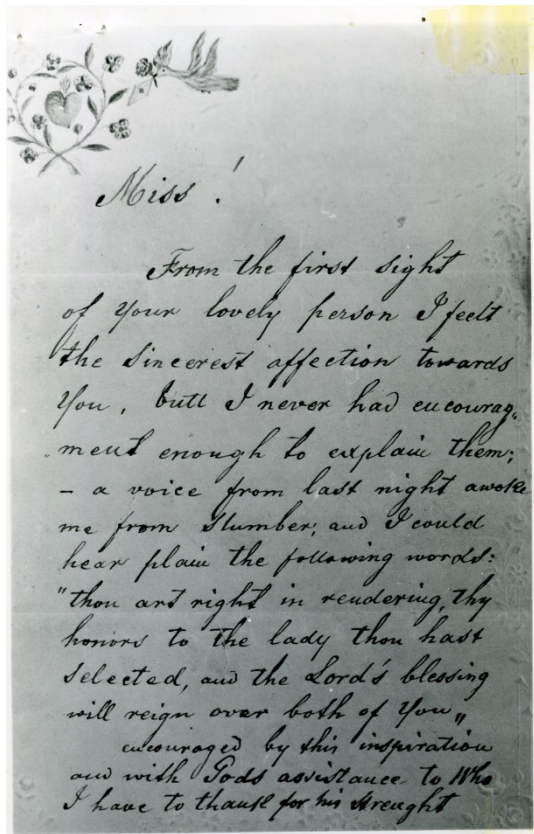 Miss !
From the first sight
of Your lovely person I feelt
the sincerest affection towards
You, butt I never had encourag„
„ment enough to explain them;
– a voice from last night awoke
me from slumber, and I could
hear plain the following words:
"thou art right in rendering, thy
honors to the lady thou hast
selected, and the Lord's blessing
will reign over both of You„
encouraged by this inspiration
and with Gods assistance to Who
I have to thank for his streught